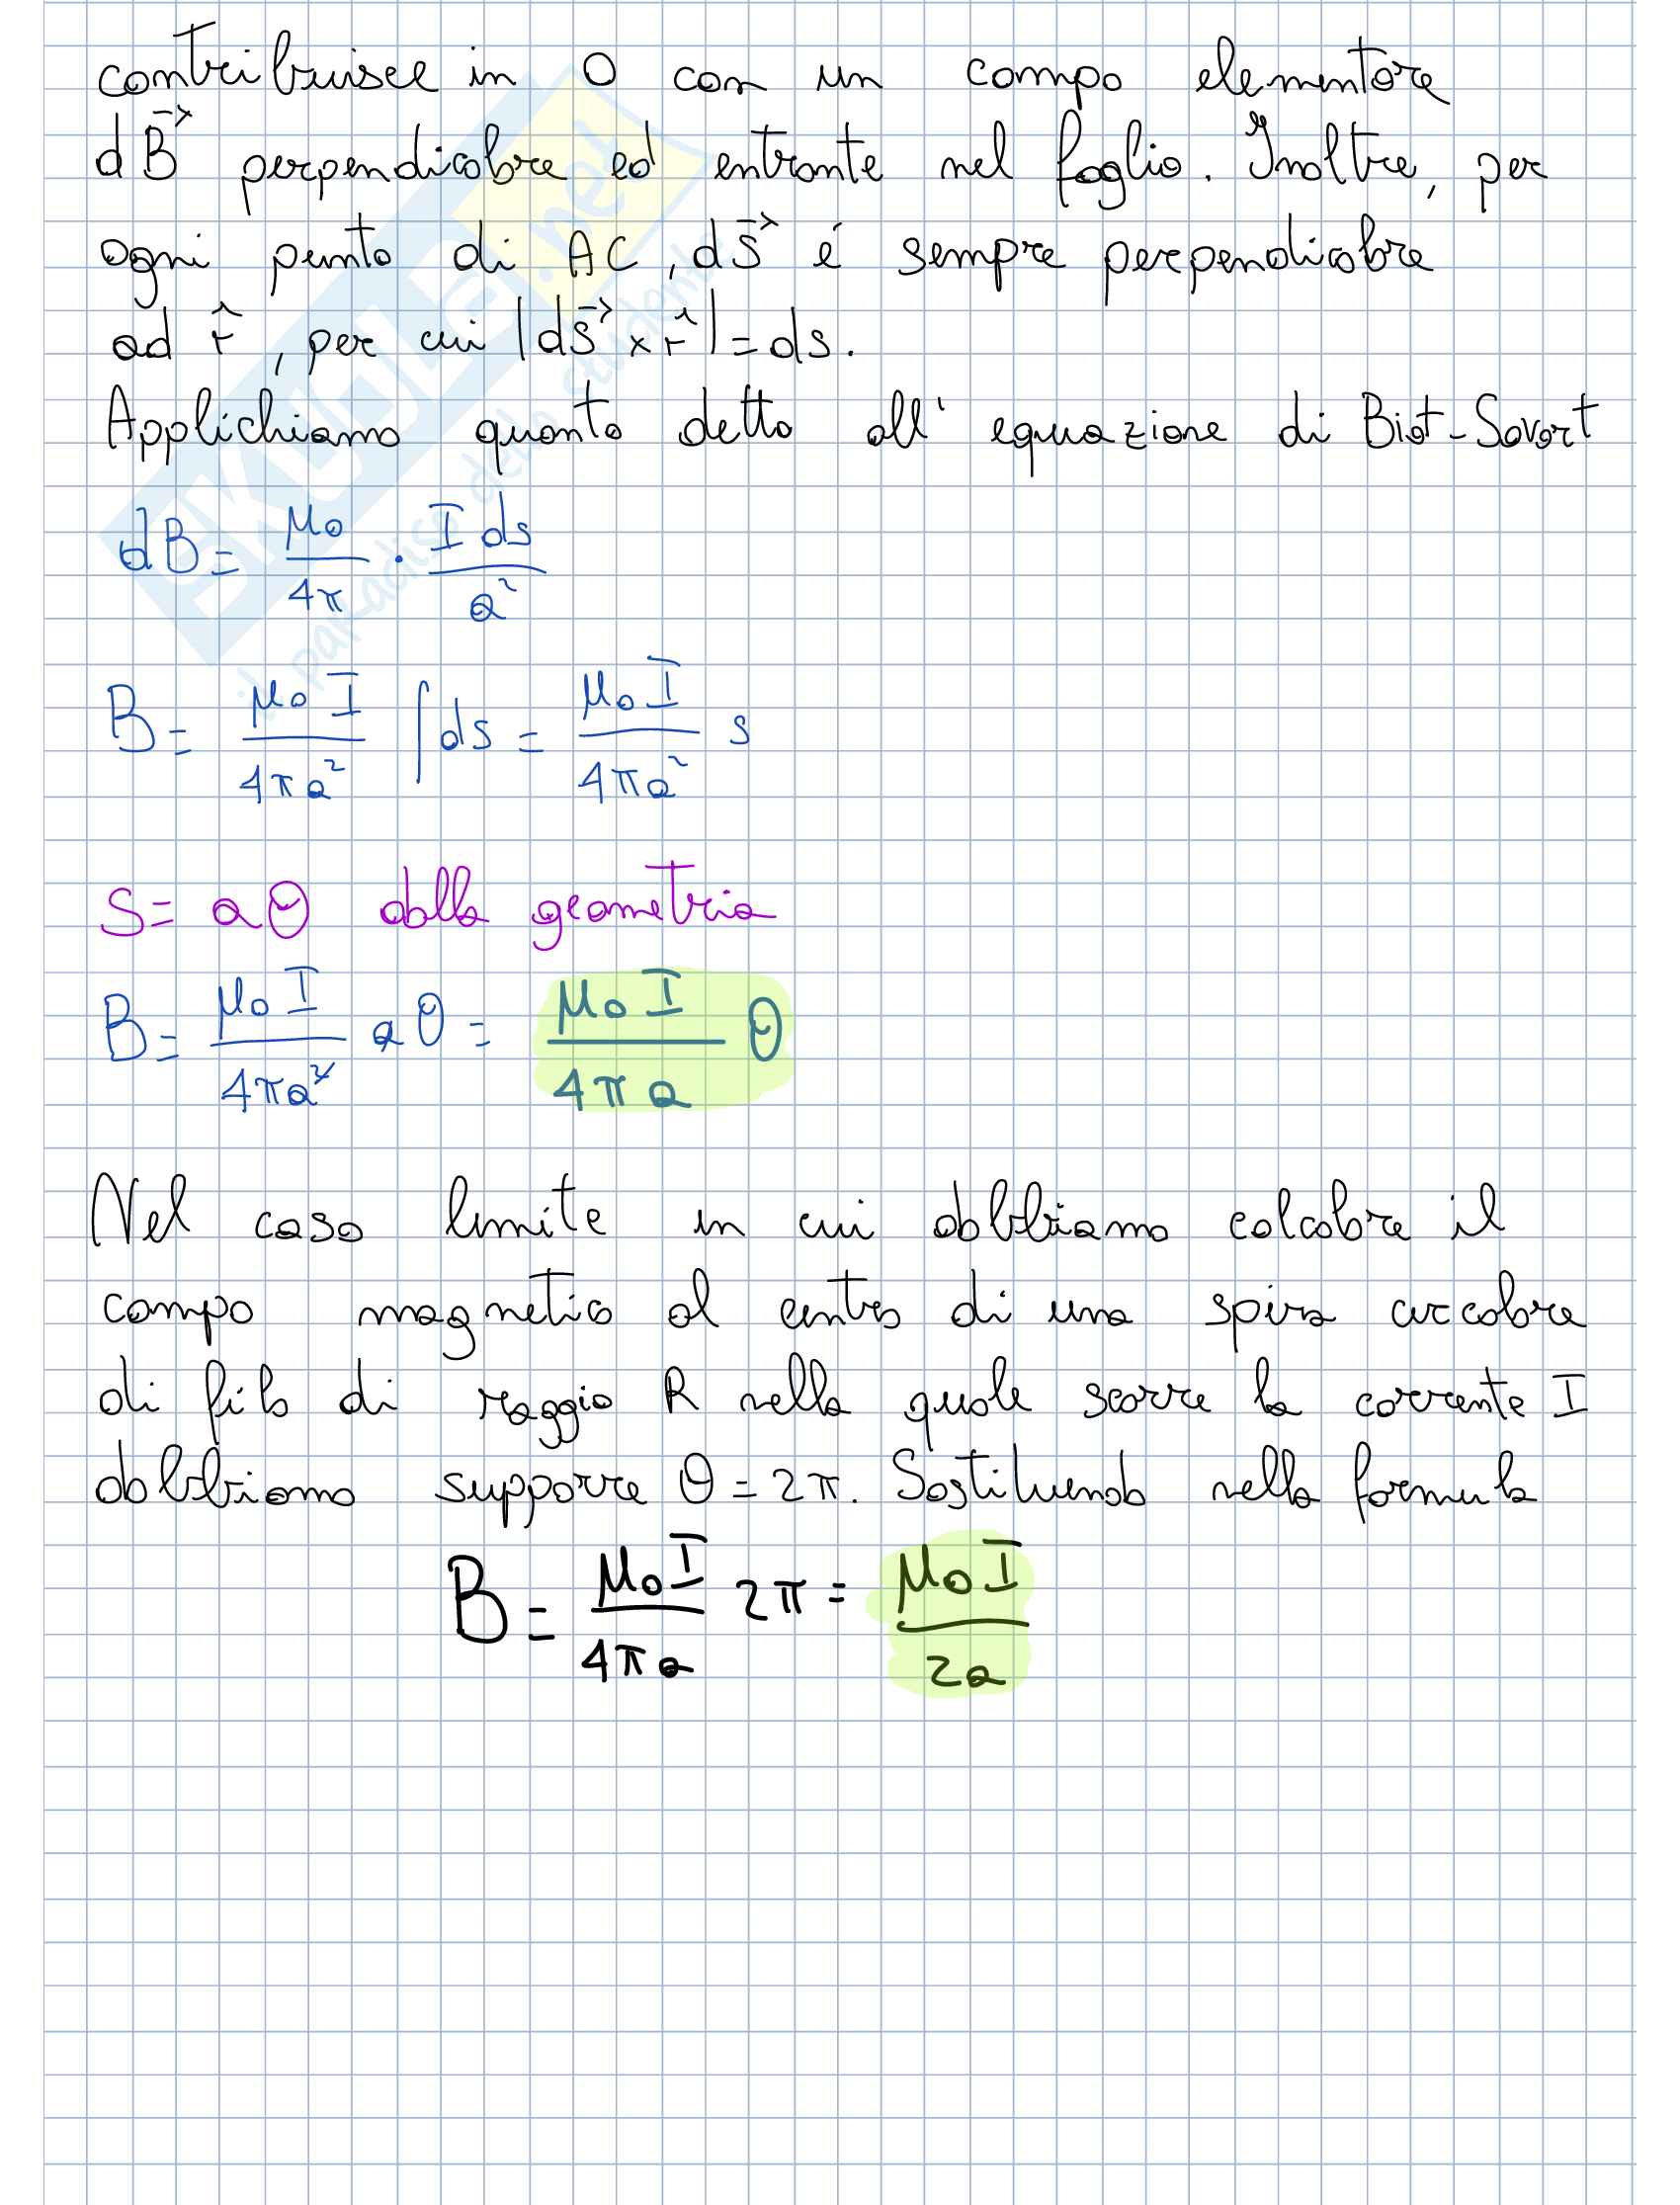 contribuisce in O con un campo elementare
dB⃗ perpendicolare ed entrante nel foglio. Inoltre, per
ogni punto di AC, ds⃗ é sempre perpendicolare
ad r̂, per cui |ds⃗ × r̂| = ds.
Applichiamo quanto detto all' equazione di Biot-Savart
dB = μ₀/4π · I ds/a²
B = μ₀I/4πa² ∫ds = μ₀I/4πa² s
S = aθ dalla geometria
B = μ₀I/4πa² aθ = μ₀I/4πa θ
Nel caso limite in cui dobbiamo calcolare il
campo magnetico al centro di una spira circolare
di filo di raggio R nella quale scorre la corrente I
dobbiamo supporre θ = 2π. Sostituendo nella formula
B = μ₀I/4πa 2π = μ₀I/2a
SKUOLA.net
il paradiso dello studente